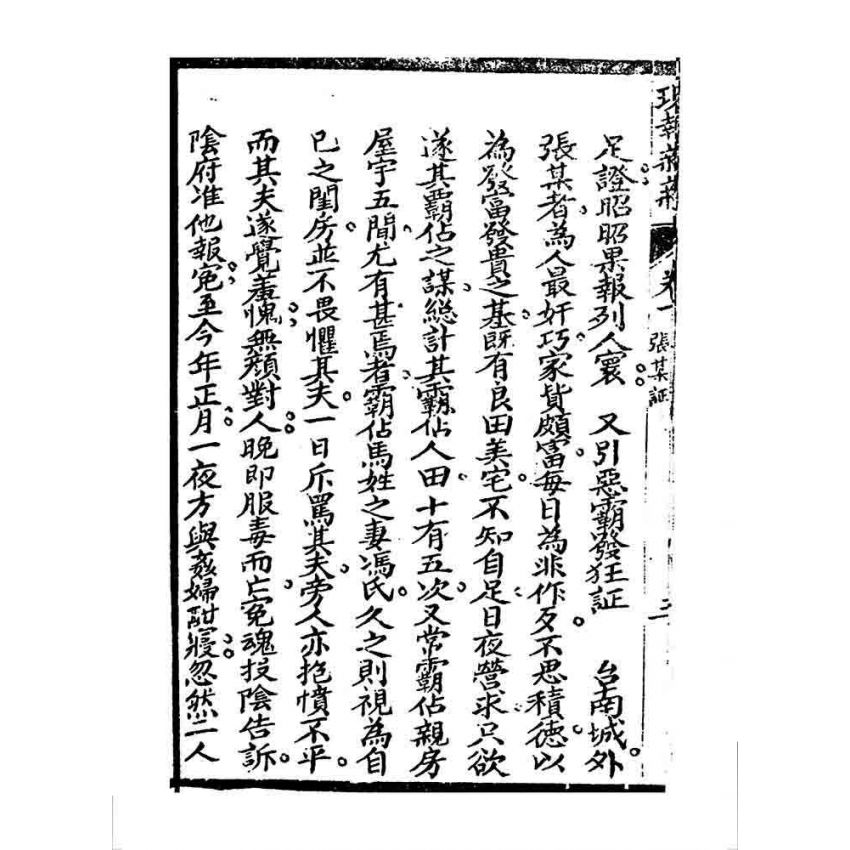 現報新新 卷一 張某証 三
足證昭昭果報列人寰 又引惡霸發狂証 台南城外
張某者為人最奸巧家貲頗富每日為非作歹不思積德以
為發富發貴之基既有良田美宅不知自足日夜營求只欲
遂其霸佔之謀總計其霸佔人田十有五次又常霸佔親房
屋宇五間尤有甚焉者霸佔馬姓之妻馮氏久之則視為自
己之閨房並不畏懼其夫一日斥罵其夫旁人亦抱憤不平
而其夫遂覺羞愧無顏對人晚即服毒而亡冤魂投陰告訴
陰府准他報冤至今年正月一夜方與姦婦酣寢忽然二人